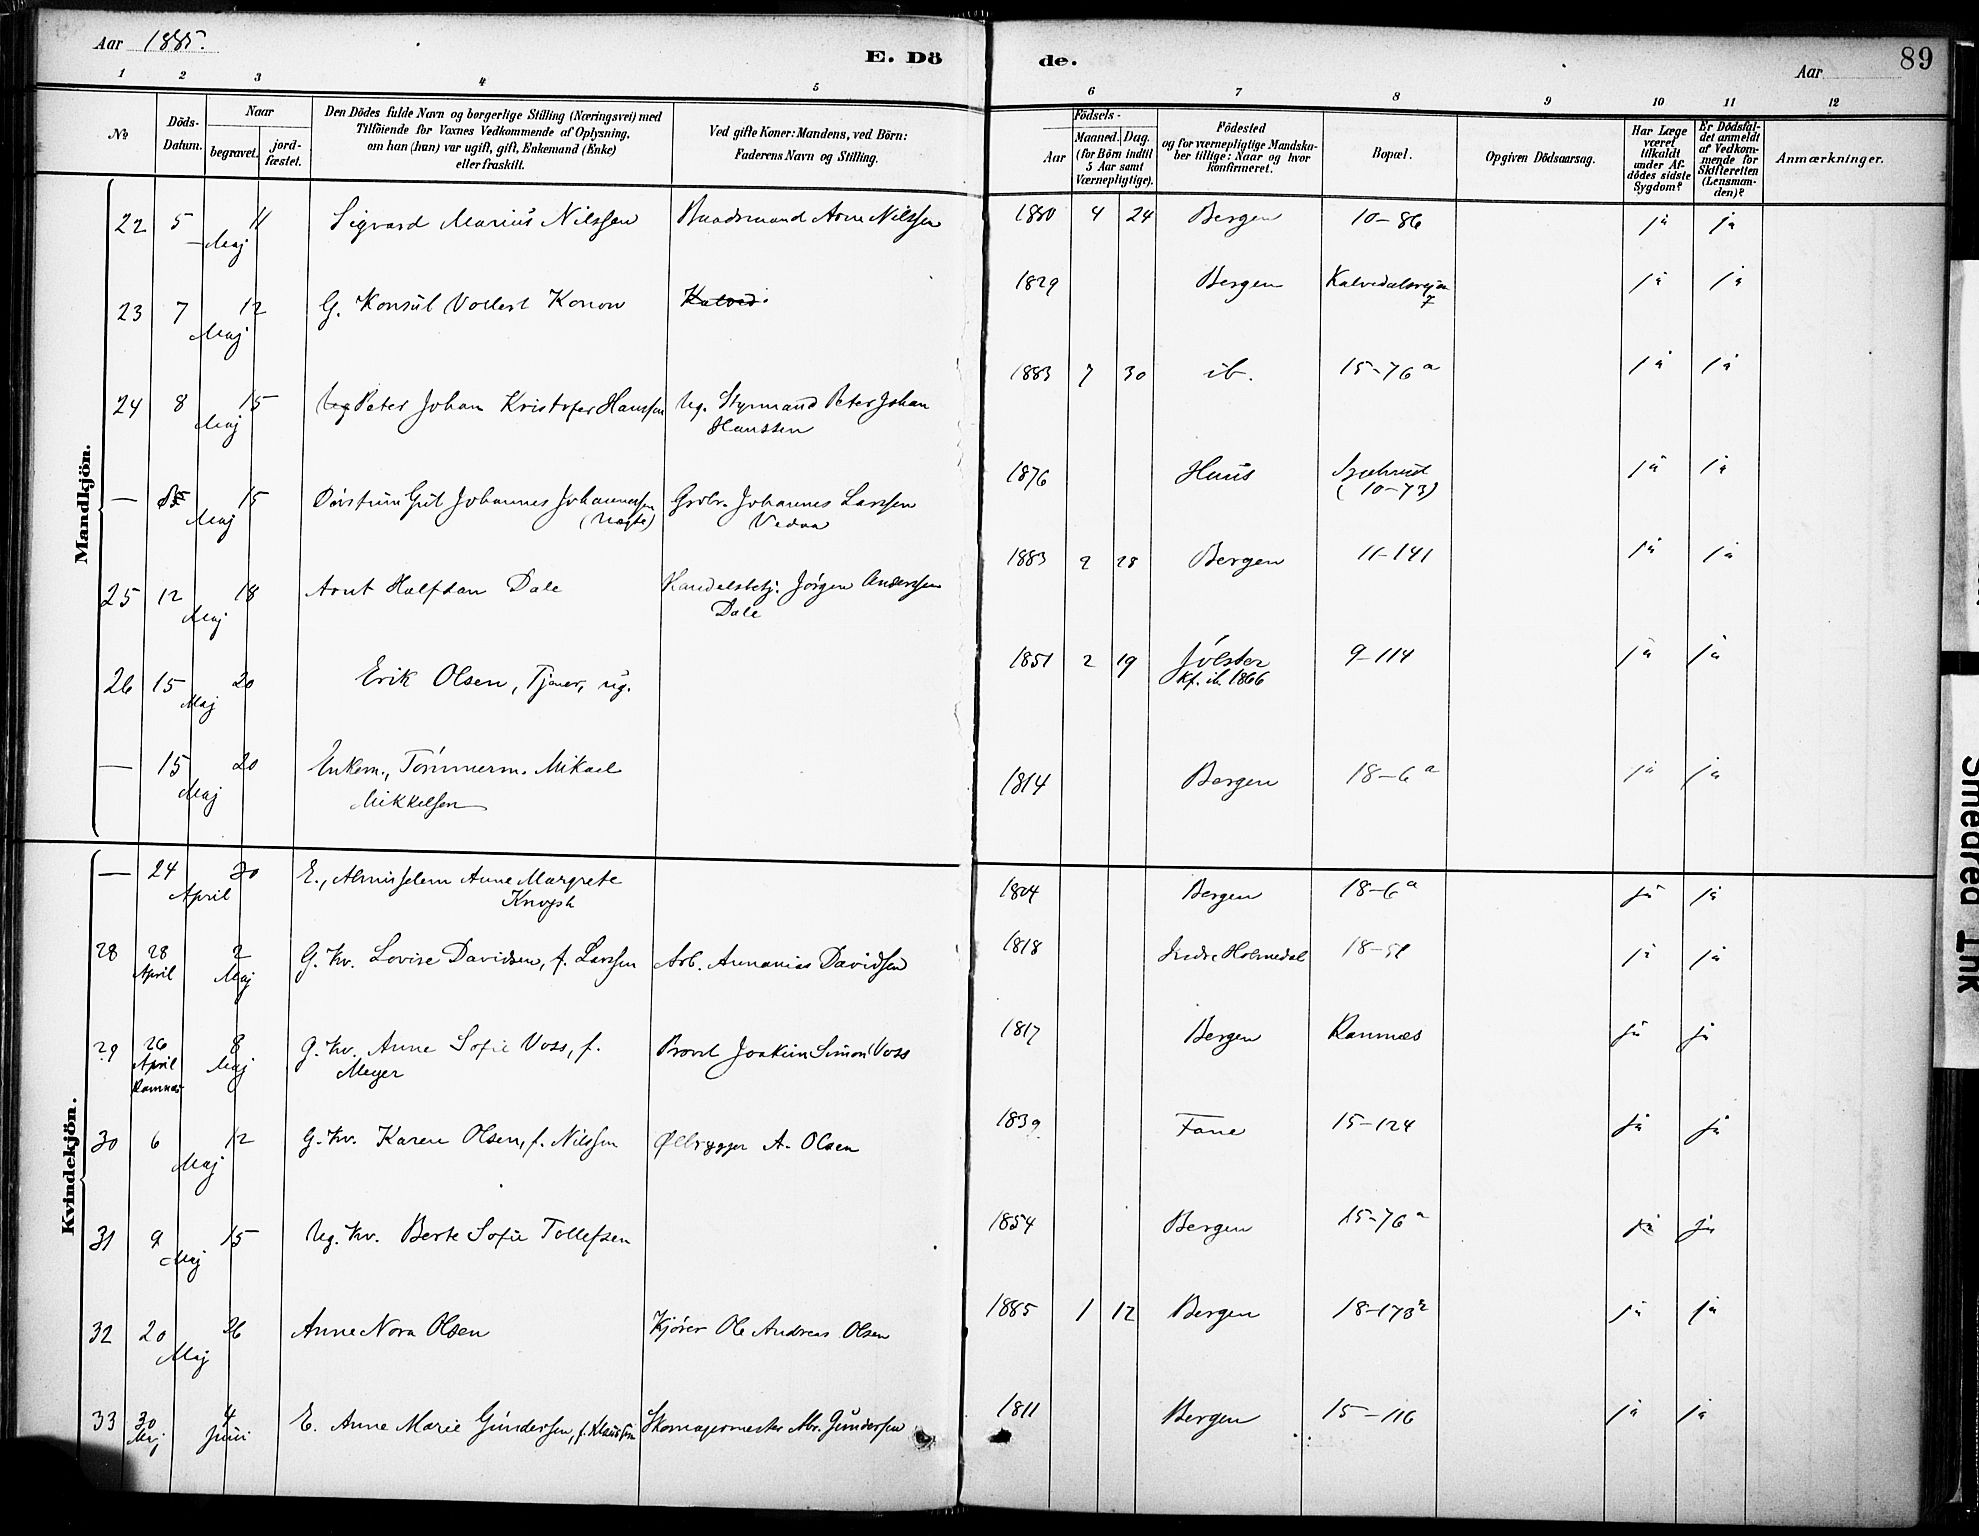 Aar 1885.
E. Dö
de.
Aar
89
1 2 3 4 5 6 7 8 9 10 11 12
No
Döds-Datum.
Naar
begravet.
jord-fæstet.
Den Dödes fulde Navn og borgerlige Stilling (Næringsvei) med
Tilföiende for Voxnes Vedkommende af Oplysning,
om han (hun) var ugift, gift, Enkemand (Enke)
eller fraskilt.
Ved gifte Koner: Mandens, ved Börn:
Faderens Navn og Stilling.
Födsels-
Aar
Maaned. Dag.
(for Börn indtil
5 Aar samt
Værnepligtige).
Födested
og for værnepligtige Mandska-
ber tillige: Naar og hvor
konfirmeret.
Bopæl.
Opgiven Dödsaarsag.
Har Læge
været
tilkaldt
under Af-
dödes sidste
Sygdom?
Er Dödsfal-
det anmeldt
af Vedkom-
mende for
Skifteretten
(Lensman-
den)?
Anmærkninger.
Mandkjön.
22 5 Maj 11 Sigvard Marius Nilssen Baadsmand Arne Nilssen 1880 4 24 Bergen 10-86 ja ja
23 7 Maj 12 G. Konsul Vollert Konow 1829 Bergen Kalvedalsvejen 7 ja ja
24 8 Maj 15 Peter Johan Kristofer Hanssen Ug. Styrmand Peter Johan
Hanssen 1883 7 30 ib. 15-76 a ja ja
— Maj 15 Gut Johannes Johannessen Grbr. Johannes Larssen
Vedaa 1876 Haus (10-73) ja ja
25 12 Maj 18 Arnt Halfdan Dale Handelsbetj. Jørgen Anderssen
Dale 1883 2 28 Bergen 11-141 ja ja
26 15 Maj 20 Erik Olsen, Tjener, ug. 1851 2 19 Jölster
kf. ib. 1866 9-114 ja ja
— 15 Maj 20 Enkem., Tömmerm. Mikael
Mikkelsen 1814 Bergen 18-6 a ja ja
Kvindekjön.
— 24 April 30 E., Almisselem Anne Margrete 1804 Bergen 18-6 a ja ja
28 28 April 2 Maj G. Kv. Lovise Davidsen, f. Larssen Arb. Annanias Davidsen 1818 Indre Holmedal ja ja
29 26 April Ramnæs 8 Maj G. Kv. Anne Sofie Voss, f.
Meyer Provst Joakim Simon Voss 1817 Bergen Ramnæs ja ja
30 6 Maj 12 G. Kv. Karen Olsen, f. Nilssen Ølbrygger A. Olsen 1839 Fane 15-124 ja ja
31 9 Maj 15 Ug. Kv. Berte Sofie Tollefsen 1854 Bergen 15-76 a ja ja
32 20 Maj 26 Anne Nora Olsen Kjører Ole Andreas Olsen 1885 1 12 Bergen 18-173 ja ja
33 30 Maj 4 Juni E. Anne Marie Gundersen, f. Klaussen Skomagermester Abr. Gundersen 1811 Bergen 15-116 ja ja
Smeared Ink